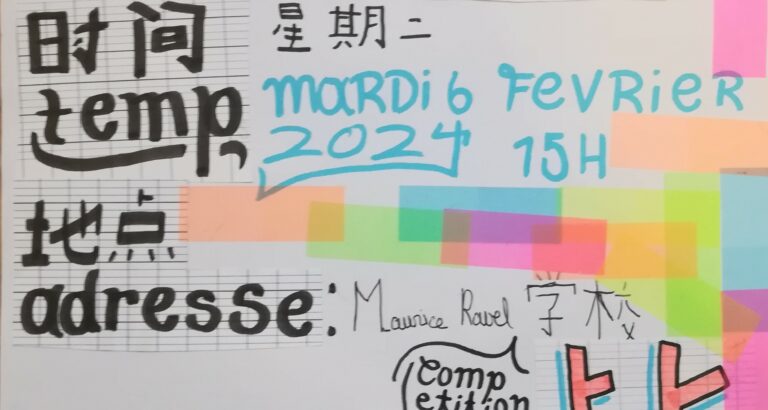 时间 星期二
temp, MARDi 6 FeVRieR
2024 15H
地点
adresse: Maurice Ravel 学校
comp
etition